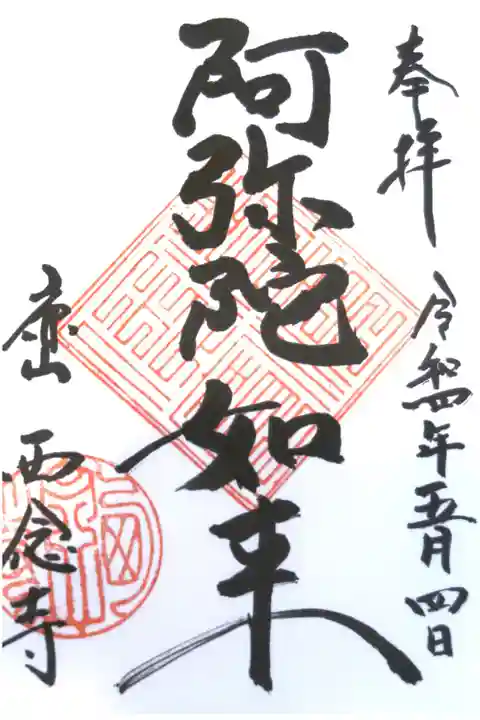 奉拝 令和四年五月四日
阿弥陀如来
西念寺